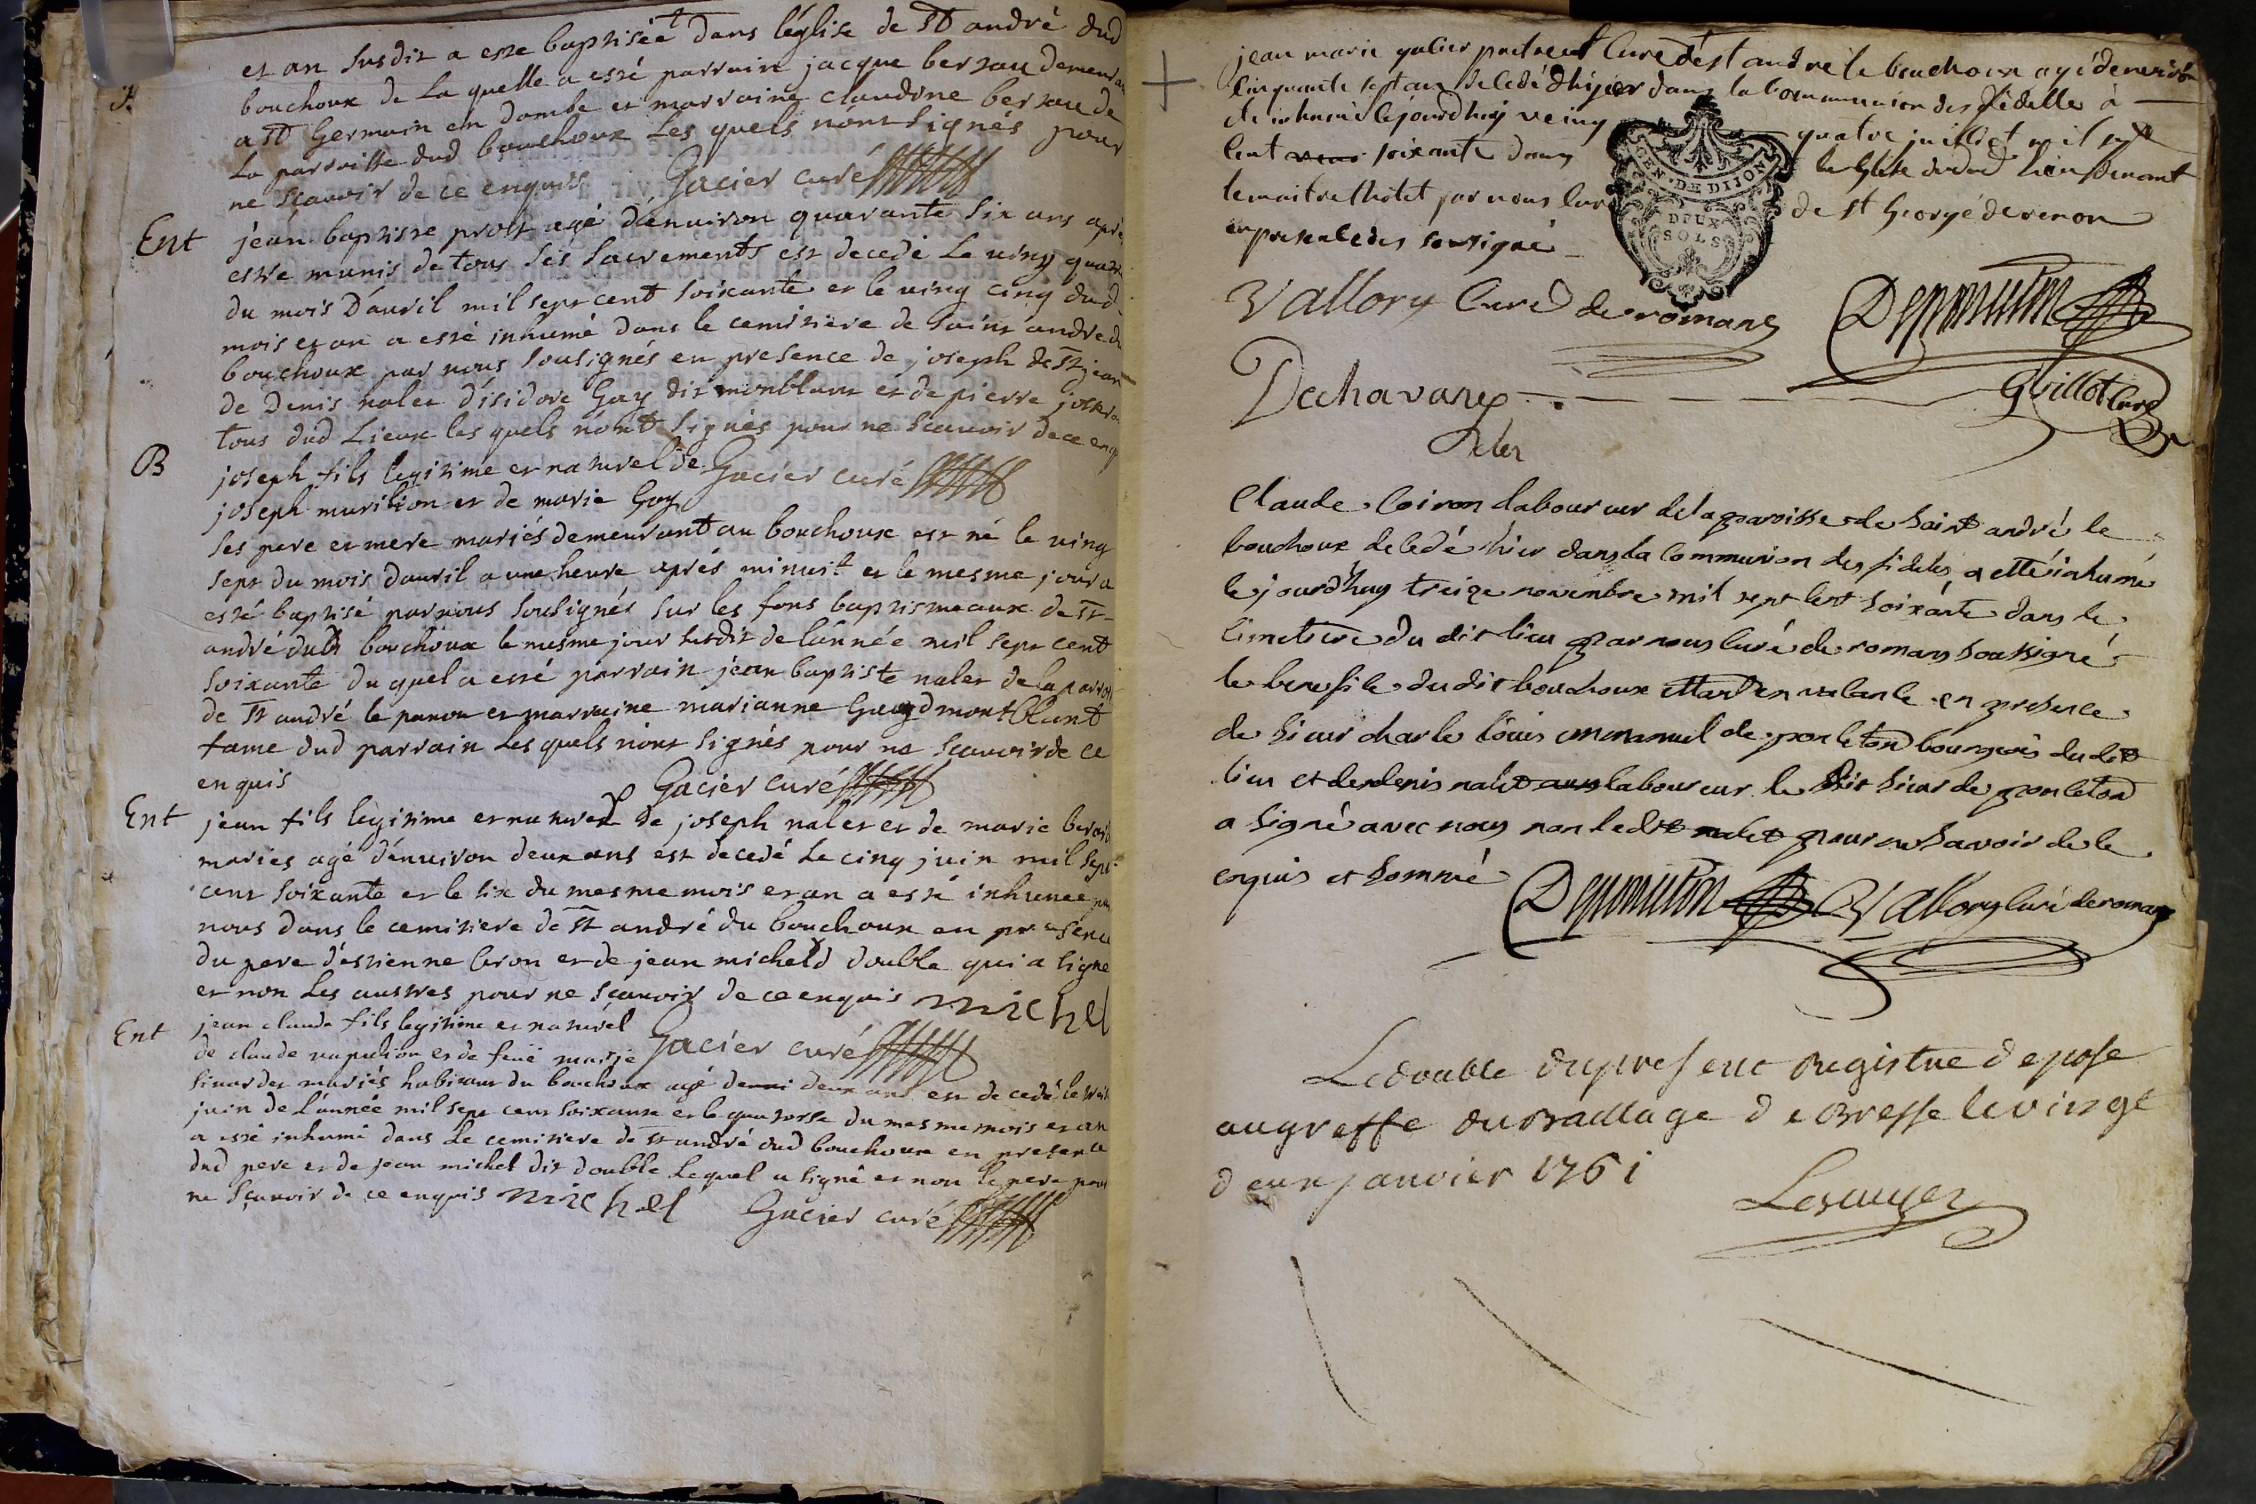 et an susdit a este baptiséé dans l'église de St andré dud
bouchoux de Laquelle a esté parrain jacque bersou demeurant
a St Germain en dombe et marraine claudine bersou de
La parroisse dud bouchoux Les quels n'ont signés pour
ne sçavoir de ce enquis Gacier curé
Ent
jean baptiste prost agé d'énuiron quarante six ans aprés
estre munis de tous les sacrements est decedé Le ving quatre
du mois D'auril mil sept cent soixante et le ving cinq dud
mois et an a esté inhumé dans le cemitiere de saint andre du
bouchoux par nous sousignés en presence de joseph de St jean
de Denis nalet d'isidore Gay dit monblant et de pierre
tous dud Lieux les quels n'ont signés pour ne sçauoir de ce enq
B
joseph fils legitime et naturel de Gacier curé
joseph murition et de marie Gay
ses pere et mere mariés demeurant au bouchoux est né le ving
sept du mois d'auril a une heure aprés minuit et le mesme jour a
esté baptisé par nous sousignés sur les fons baptismeaux de St
andré dud bouchoux le mesme jour susdit de l'année mil sept cent
soixante du quel a esté parrain jean baptiste nalet de la parroi
de St andré le panou et marraine marianne Gay d montblant
fame dud parrain Les quels n'ont signés pour ne sçauoir de ce
enquis Gacier curé
Ent
jean fils legitime et naturel de joseph nalet et de marie
mariés agé d'énuiron deux ans est decedé Le cinq juin mil sept
cent soixante et le six du mesme mois et an a esté inhumé par
nous dans le cemitiere de St andré du bouchoux en presence
du pere d'estienne Ciron et de jean michel d double qui a signé
et non Les austres pour ne sçauoir de ce enquis michel
Ent
jean claude fils legitime et naturel Gacier curé
de claude et de feuë marie
mariés habitant du bouchoux agé de deux ans est decedé le
juin de l'année mil sept cent soixante et le quatorse du mesme mois et an
a esté inhumé dans Le cemitiere de St andré dud bouchoux en presence
dud pere et de jean michel dit double Lequel a signé et non le pere pour
ne sçauoir de ce enquis michel Gacier curé
jean marie gacier pretre et Curé de st andre le bouchoux agé denviron
Cinquante sept ans decedé dhyer dans la Communion des fidelle à
ete inhumé cejourdhuy veing quatre juillet mil sept
Cent soixante dans leglise dudud lieu devant
le maitre Autel par nous Curé de st George de renon
en presence des sousigné
GEN. DE DIJON
DEUX
SOLS
Vallory Curé de romans Deponceton
Dechavanes Guillot Curé
Claude Coiron laboureur de la paroisse de saint andré le
bouchoux decedé hier dans la Communion des fideles a etté inhumé
le jourdhuy treize novembre mil sept cent soixante dans le
Cimetiere du dit lieu par nous Curé de romans soussigné
le benefice du dit bouchoux ettant en vacance en presence
de sieur charle louis emmanuel de ponceton bourgeois dudit
lieu et de denis nalet laboureur le dit sieur de ponceton
a signé avec nous non ledit nalet pour ne savoir de ce
enquis et sommé Deponceton Vallory Curé de romans
Le double du present Registre depose
au greffe du Bailliage de Bresse le vingt
deux janvier 1761